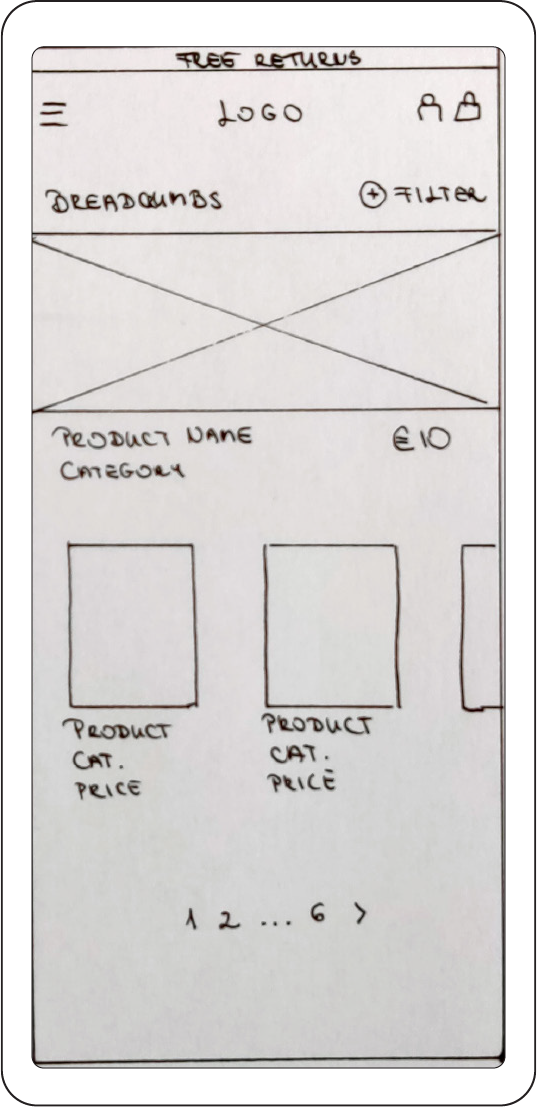 FREE RETURNS
LOGO
BREADCUMBS
+ FILTER
PRODUCT NAME €10
CATEGORY
PRODUCT PRODUCT
CAT. CAT.
PRICE PRICE
1 2 ... 6 >